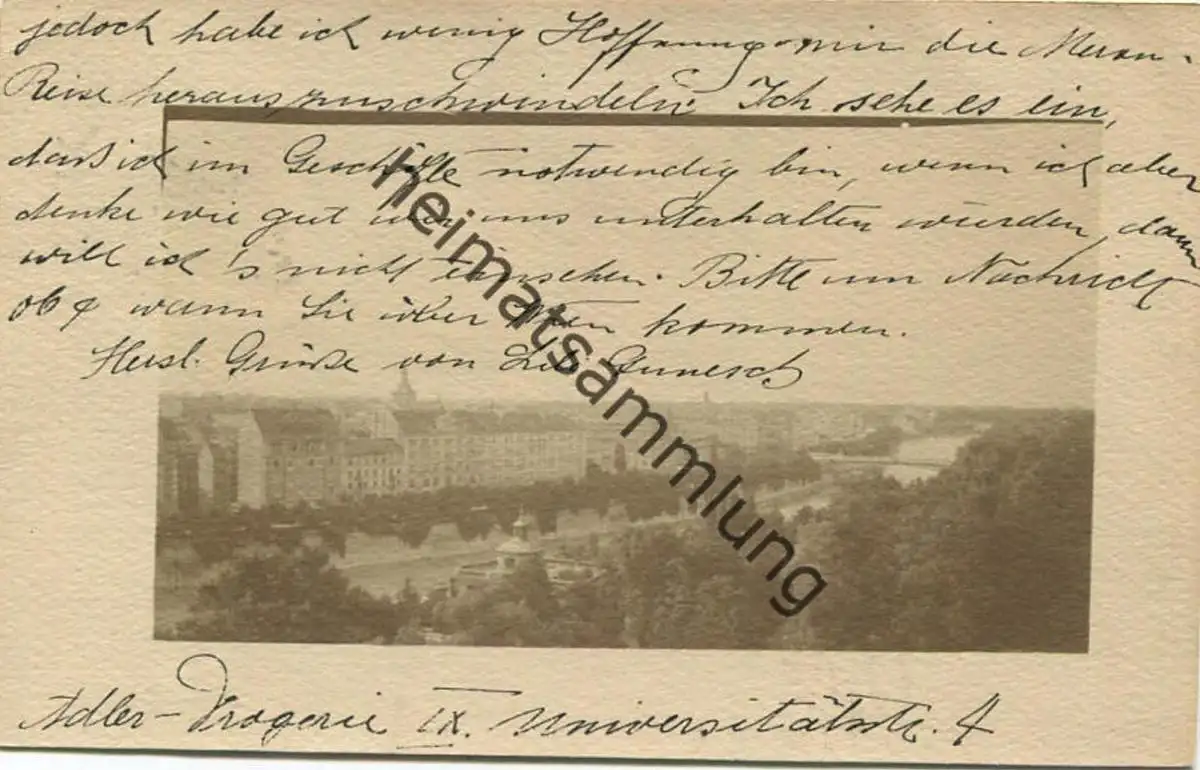 jedoch habe ich wenig Hoffnung mir die Meran-
Reise herauszuschwindeln. Ich sehe es ein,
daß ich im Geschäfte notwendig bin, wenn ich aber
denke wie gut wir uns unterhalten würden, dann
will ich 's nicht einsehen. Bitte um Nachricht
ob & wann Sie über Wien kommen.
Herzl. Grüße von Gunesch
Adler-Drogerie IX. Universitätsstr. 4
Heimatsammlung